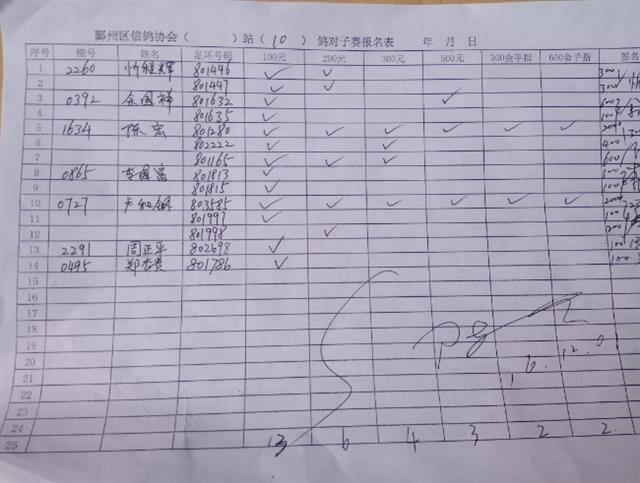 鄞州区信鸽协会（ ）站（10）鸽对子赛报名表 年 月 日
序号 棚号 姓名 足环号码 100元 200元 300元 500元 300金手指 600金手指 签名
1 2260 忻继辉 801446 ✓ ✓ 300
2 801447 ✓ ✓ 300
3 0392 余国祥 801632 ✓ ✓
4 801635 ✓ 100
5 1634 陈宏 801280 ✓ ✓ ✓ ✓ ✓ ✓
6 802222 ✓ ✓ 400
7 801165 ✓ ✓ ✓
8 0865 李国富 801813 ✓
9 801815 ✓
10 0727 803585 ✓ ✓ ✓ ✓ ✓ ✓
11 801997 ✓ 100
12 801998 ✓
13 2291 周正华 802698 ✓
14 0495 801786 ✓ 100
15
16
17
18
19
20
21
22
23
24
25 13 6 4 3 2 2.